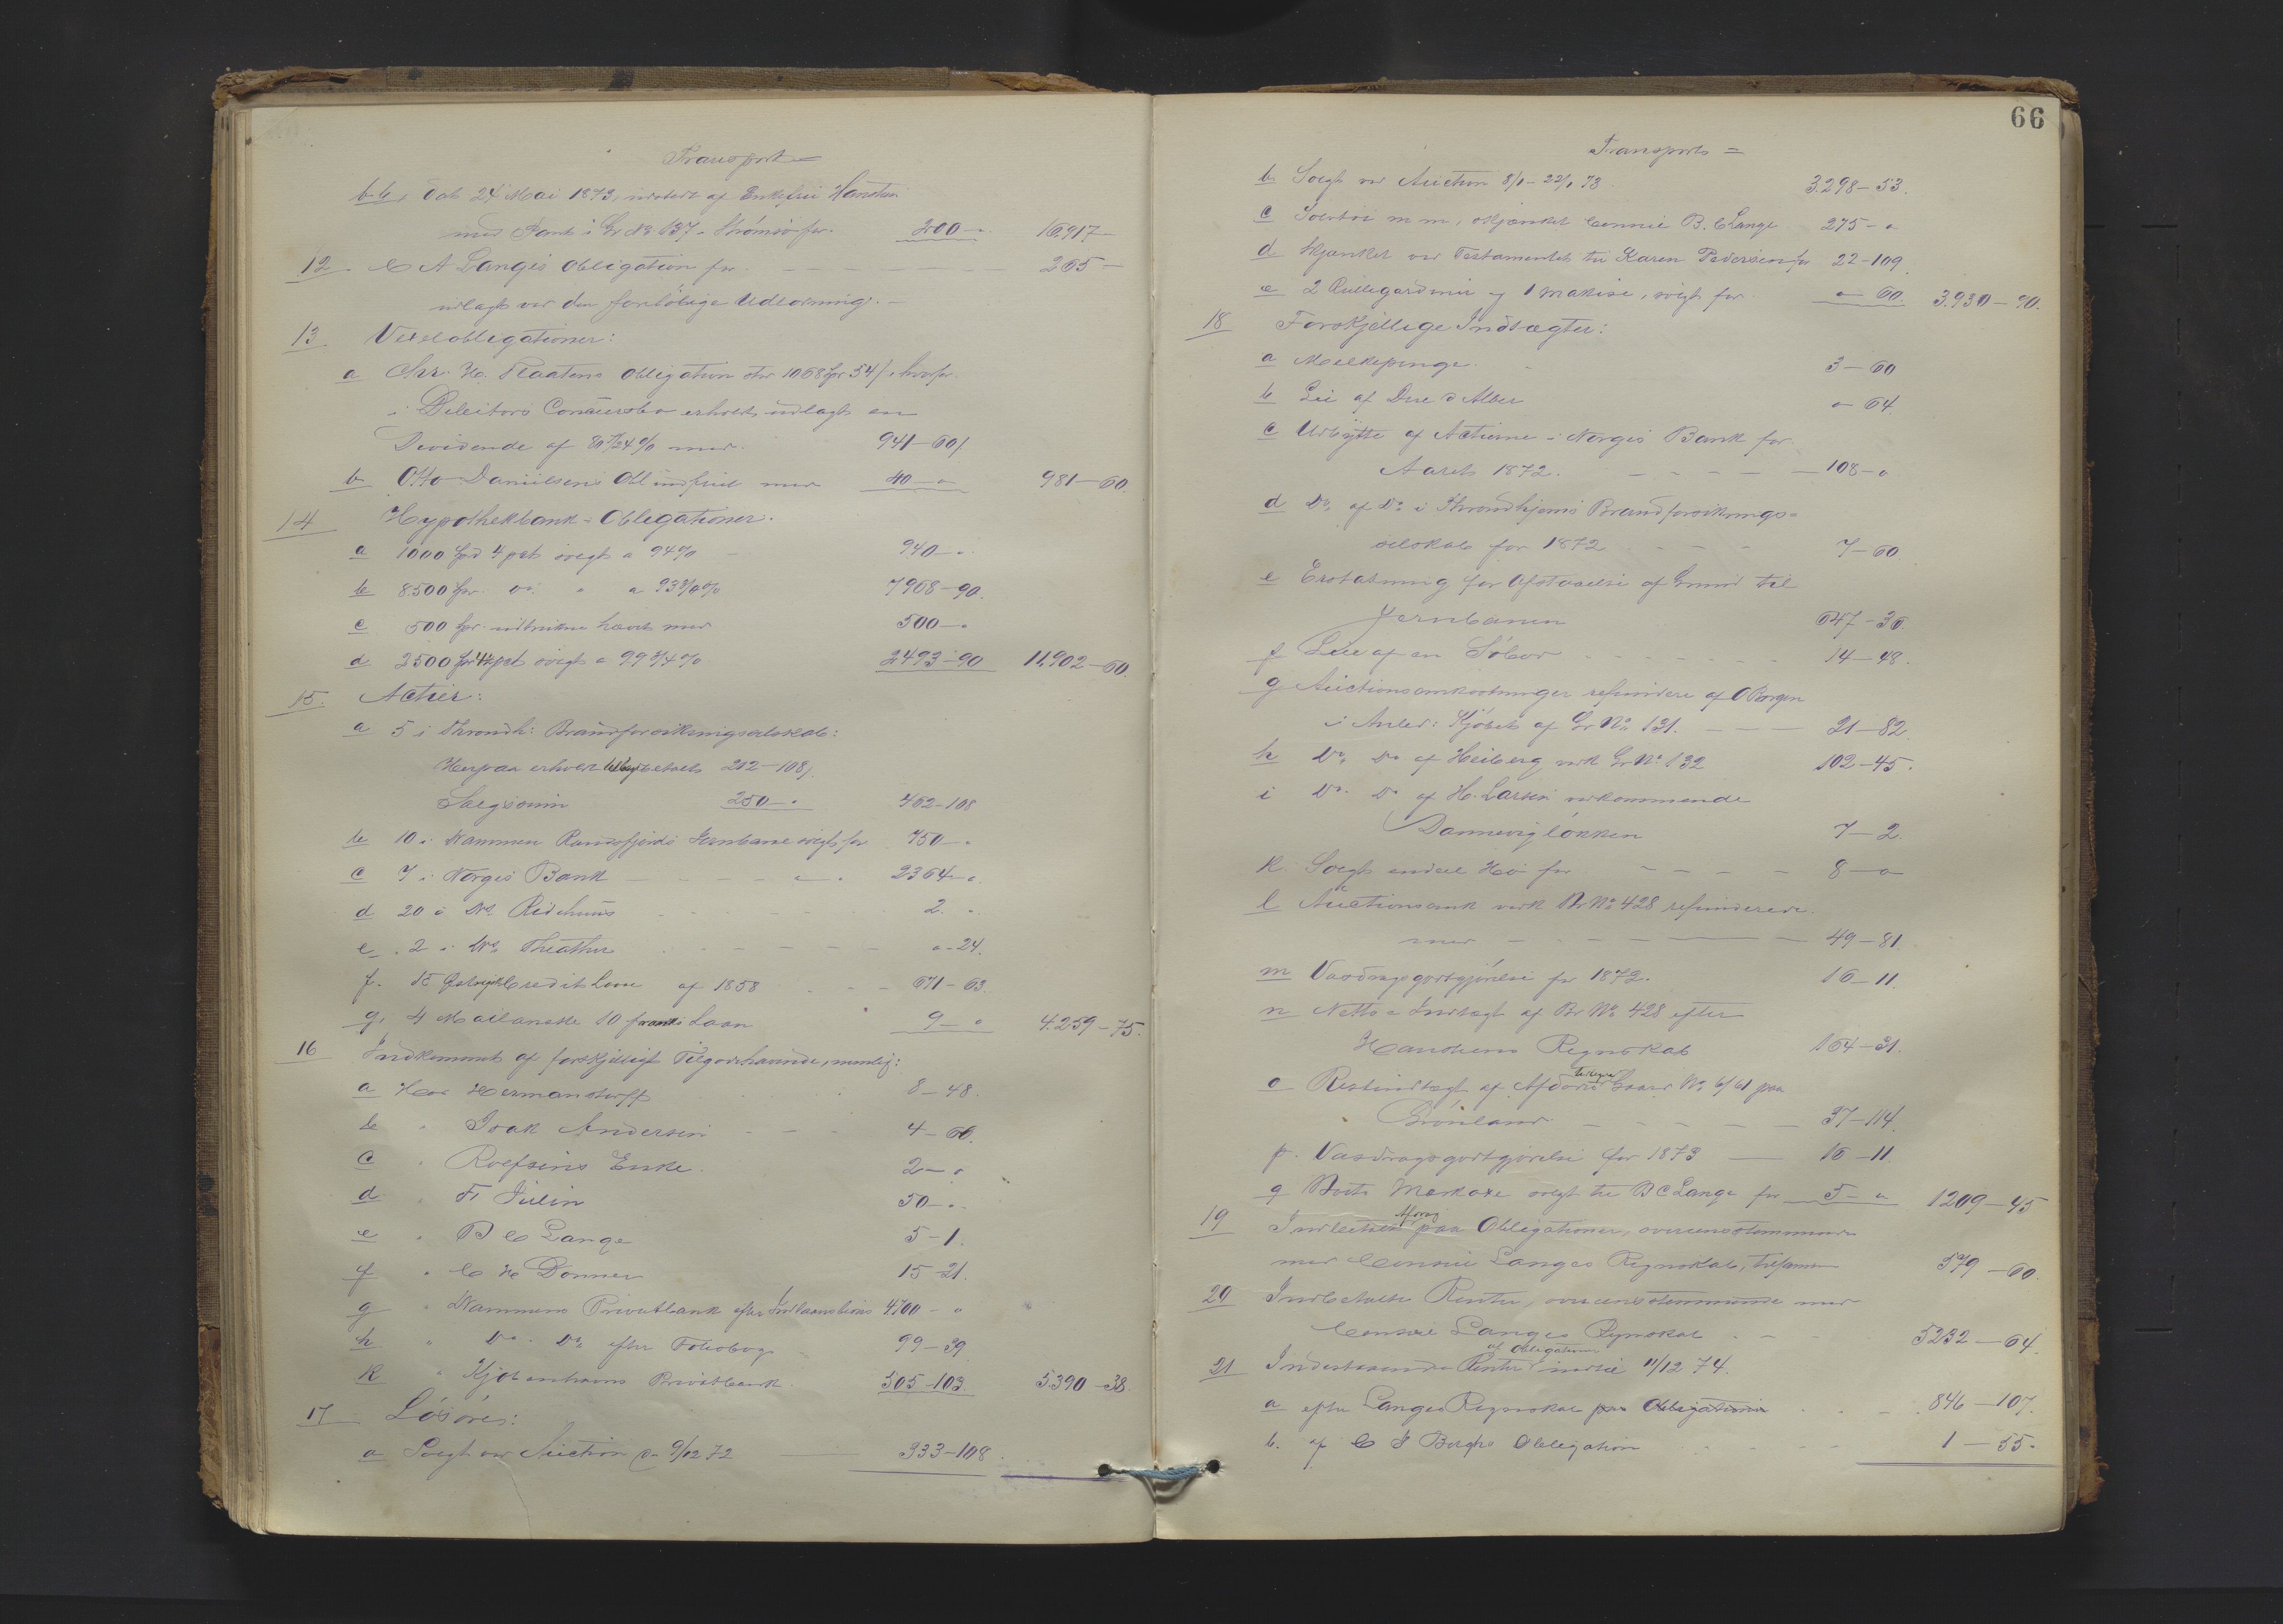 Transport =
bb, dat 24 Mai 1873, udstedt af Enkefru
med Pant i Gr No 137. Strømsø for. 200 - " 16.917 -
12 C A Langes Obligation for 265 -
udlagt ved den foreløbige Udlodning. -
13 Vexelobligationer:
a Chr. H. Flaatens Obligation stor 1068 Spd 54 β, hvorfor
i Debitors Concursbo erholdt udlagt en
Dividende af % med. 941 - 60 β
b Otto Danielsens Obl indfriet med 40 - " 981 - 60.
14 Hypothekbank = Obligationer.
a 1000 Spd 4 pct solgt a 94% - 940 - "
b 8.500 Spd. do. " a 93 3/4 % 7968 - 90.
c 500 Spd. udtrukne hævet med 500 - "
d 2500 Spd 4½ pct solgt a 99 3/4 % 2493 - 90 11,902 - 60.
15. Actier:
a 5 i Throndh: Brandforsikringsselskab:
Herpaa erholdt tilbagebetalt 212 - 108 β
Salgssum 250 - " 462 - 108
b 10 i Drammen Randsfjords Jernbane solgt for 750 - "
c 7 i Norges Bank - - - - " - " 2364 - "
d 20 i Dr. Ridehuus 2. "
e. 2 i Dr. Theather " - 24.
f. Credit Loose af 1858 671 - 63.
g. 4 Mailandske 10 francs Laan 9 - " 4.259 - 75.
16 Indkommet af forskjelligt Tilgodehavende, nemlig:
a Hos Hermanstorff 8 - 48.
b " Isak Andersen 4 - 60.
c " Roefsens Enke. 2 - "
d " Fr Julin 50 - "
e " B C Lange 5 - 1.
f " C H Donner 15 - 21.
g " Drammens Privatbank efter Indlaansbevis 4700 - "
h " Do. Do. efter Foliobog 99 - 39
k " Kjøbenhavns Privatbank 505 - 103 5.390 - 38.
17 Løsøre:
a Solgt ved Auction d. 9/12 72 933 - 108

66
Transport =
b Solgt ved Auction 8/1 - 22/1 73. 3.298 - 53.
c m m, skjænket Consul B. C Lange 275 - "
d Skjænket ved Testamentet til Karen Pedersen for 22 - 109.
e 2 Rullegardiner og 1 Makise, solgt for " - 60. 3.930 - 90.
18 Forskjellige Indtægter:
a Melkepenge. 3 - 60
b Leie af Due d'Alber " - 64.
c Udbytte af Actierne i Norges Bank for
Aaret 1872. - - - - 108 - "
d Do. af Do i Throndhjems Brandforsikrings=
selskab for 1872 7 - 60.
e Erstatning for Afstaaelse af Grund til
Jernbanen 647 - 36.
f Leie af en Søbod 14 - 48.
g Auctionsomkostninger refundert af O Borgen
i Anled: Kjøbet af Gr No. 131. - - - 21 - 82
h Do. Do af Heiberg vedk Gr No. 132 102 - 45.
i Do. Do af H. Larsen vedkommende
Danneviglökken 7 - 2.
k. Solgt endeel Hø for - - - - 8 - "
l Auctionsomk vedk Br No 428 refunderede
med - - - 49 - 81
m Vasdragsgodtgjørelse for 1872. 16 - 11.
n Netto = Indtægt af Br No. 428 efter
Regnskab 164 - 31.
o Restindtægt af Afdøde tilhørende Gaard No. 6/61 paa
Grønland - - - - 37 - 114.
p. Vasdragsgodtgjørelse for 1873 - 16 - 11.
q Boets solgt til B C Lange for 5 - " 1209 - 45
19 Indbetalt Afdrag paa Obligationer, overeensstemmende
med Consul Langes Regnskab, tilsammen 579 - 60.
20 Indbetalte Renter, overeensstemmende med
Consul Langes Regnskab. - - 5232 - 64.
21 Indestaaende Renter af Obligationer indtil 11/12 74.
a efter Langes Regnskab paa Obligationer 846 - 107.
b. af C F Obligation 1 - 55.